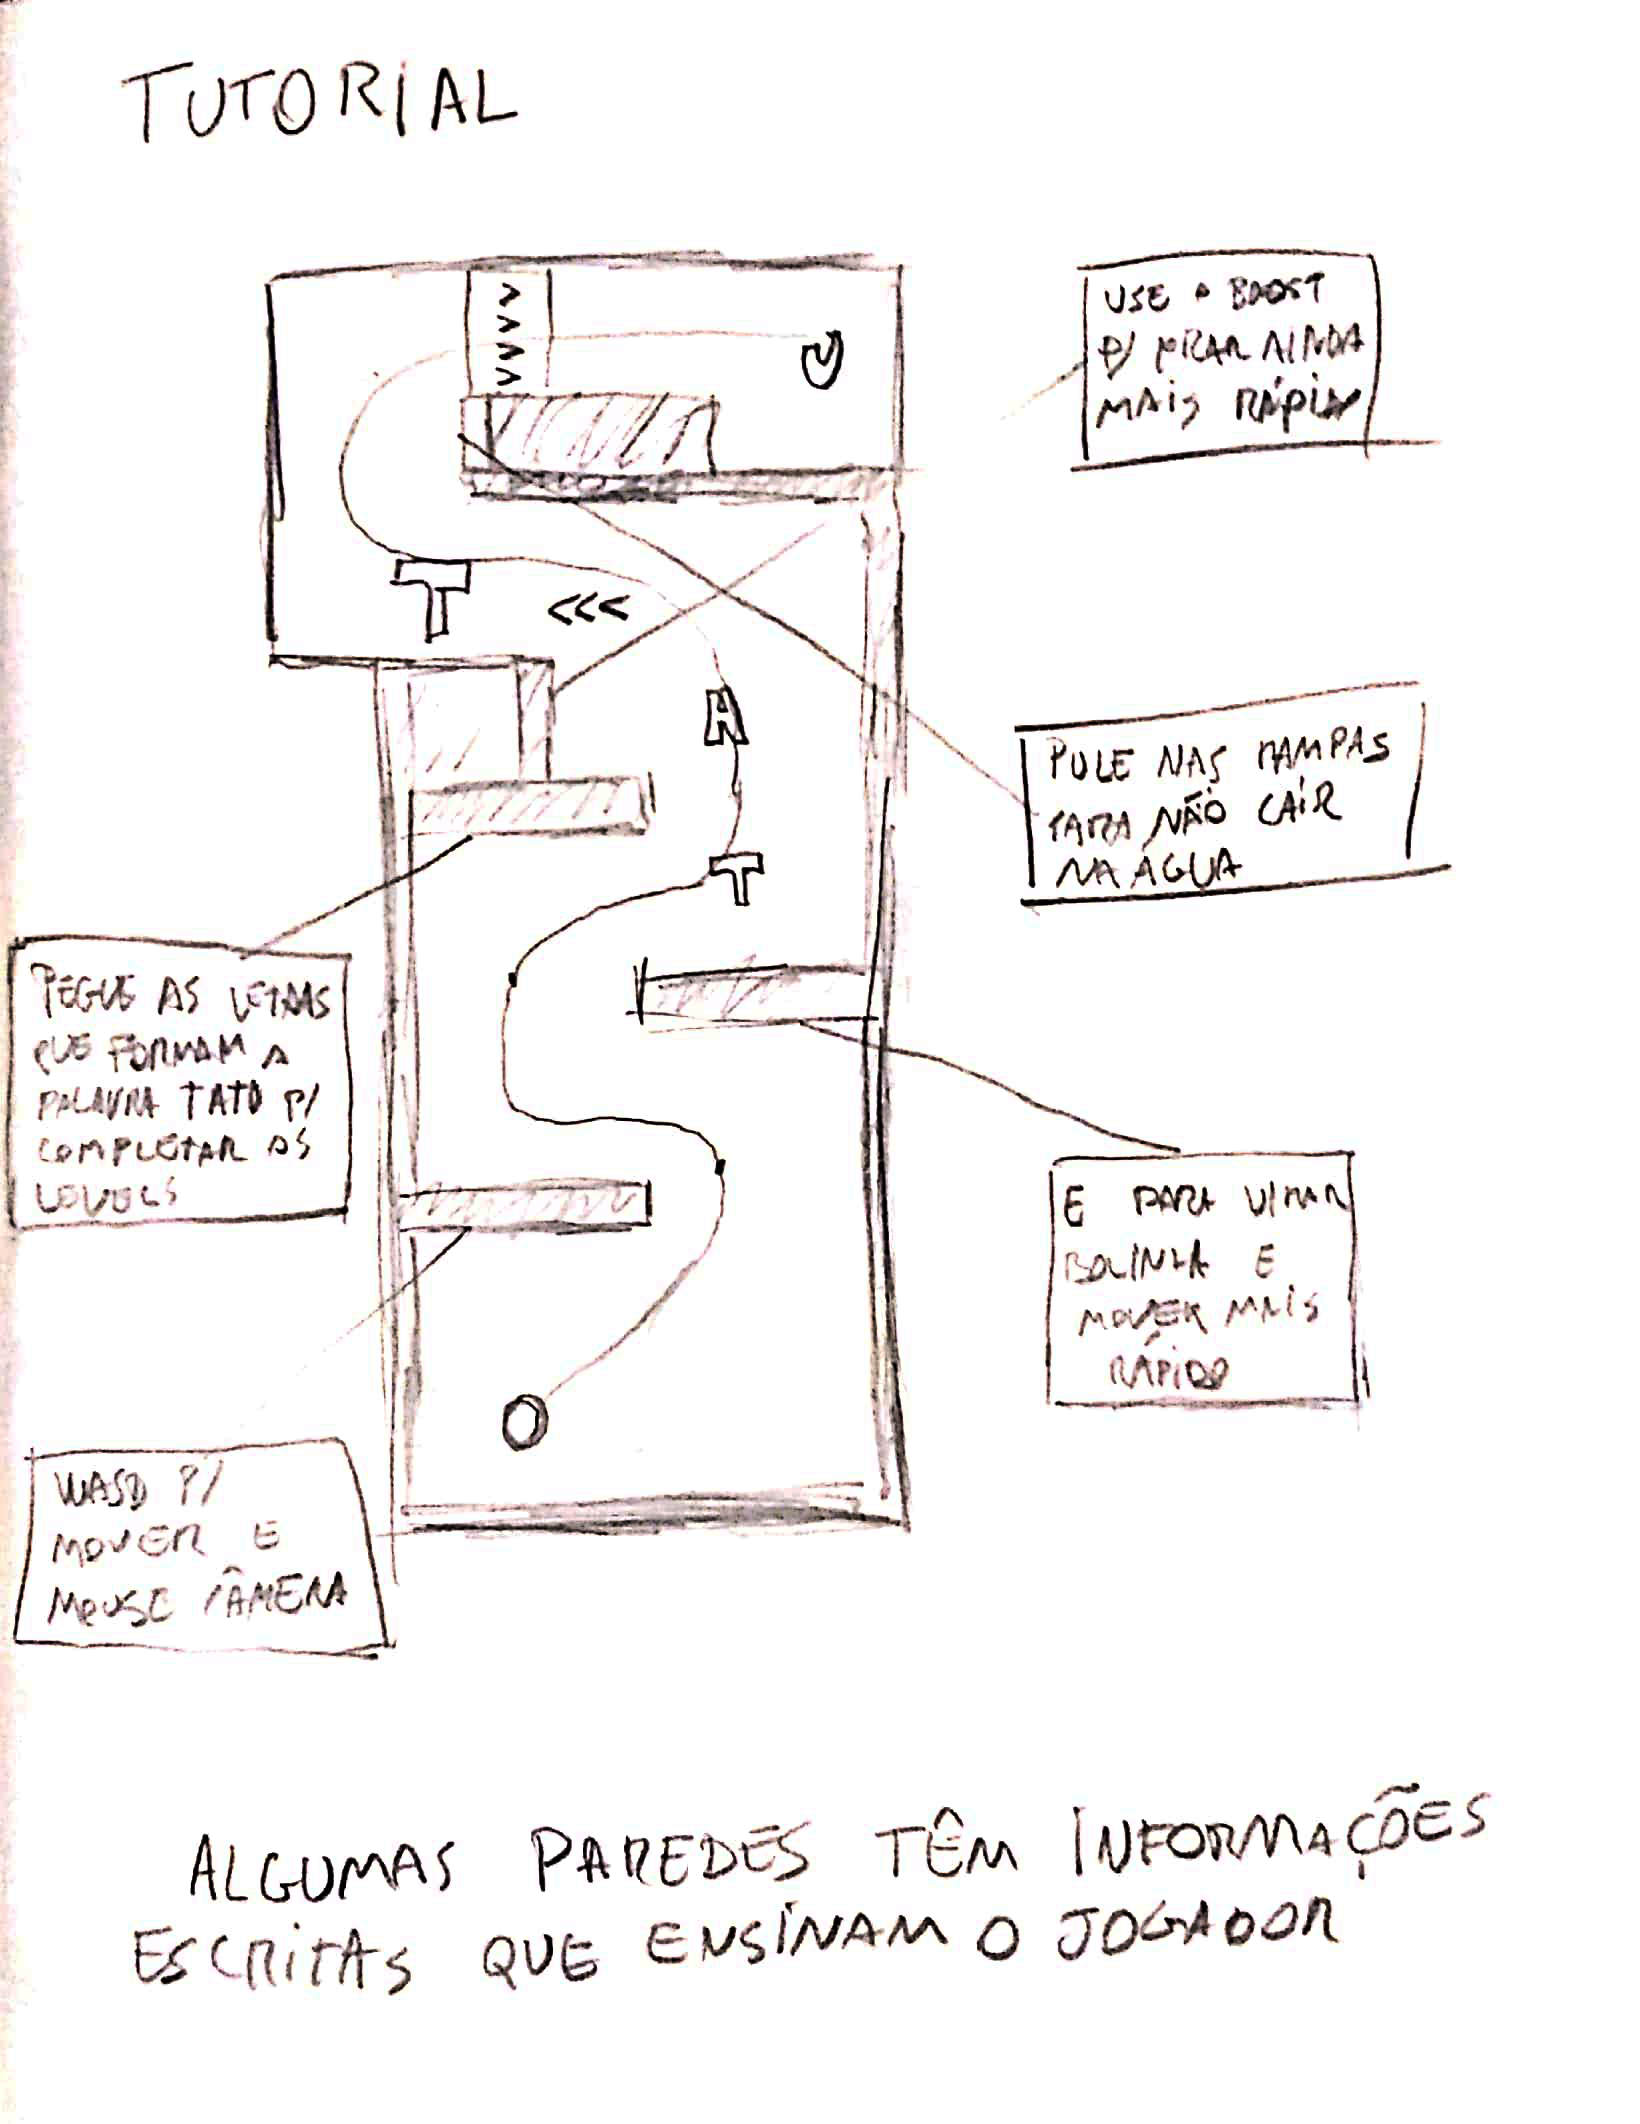 TUTORIAL
USE O BOOST
P/ MAIS RÁPIDO
VVVV
<<<
T
A
T
PULE NAS RAMPAS
PARA NÃO CAIR
NA ÁGUA
PEGUE AS LETRAS
QUE FORMAM A
PALAVRA TATU P/
COMPLETAR OS
LEVELS
E PARA VIRAR
BOLINHA E
MOVER MAIS
RÁPIDO
WASD P/
MOVER E
MOUSE CÂMERA
ALGUMAS PAREDES TÊM INFORMAÇÕES
ESCRITAS QUE ENSINAM O JOGADOR